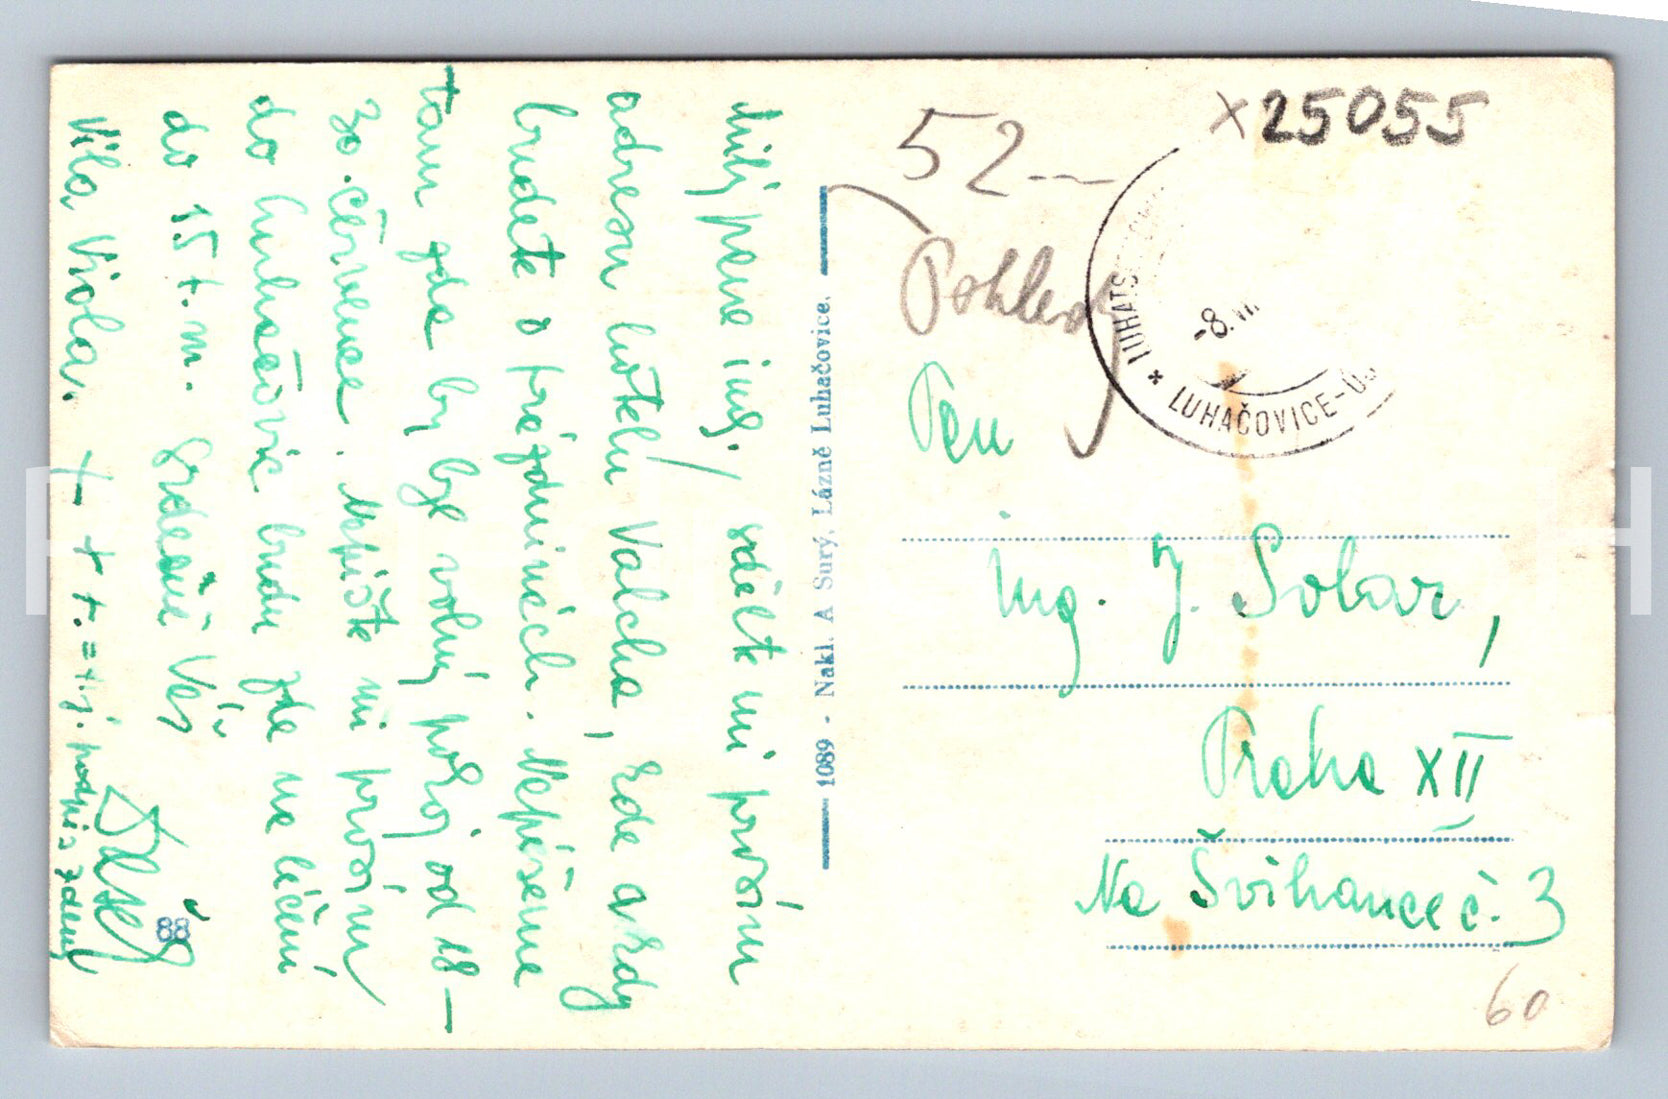 Milý pane ing./ sdělte mi prosím
adresu hotelu Valcha, kde a kdy
budete o prázdninách. Nepíšeme
tam zda by byl volný pokoj od 18 –
30. července. Napište mi prosím
do Luhačovic budu zde na léčení
do 15 t. m. Srdečně Váš
Vila Viola. + + +. = tři.
88
1089 - Nakl. A Surý, Lázně Luhačovice.
x25055
52 --
Pohled
LUHATS
LUHAČOVICE-
-8. VI
Pan
ing. J. Solar,
Praha XII
Na Švihance č. 3
60